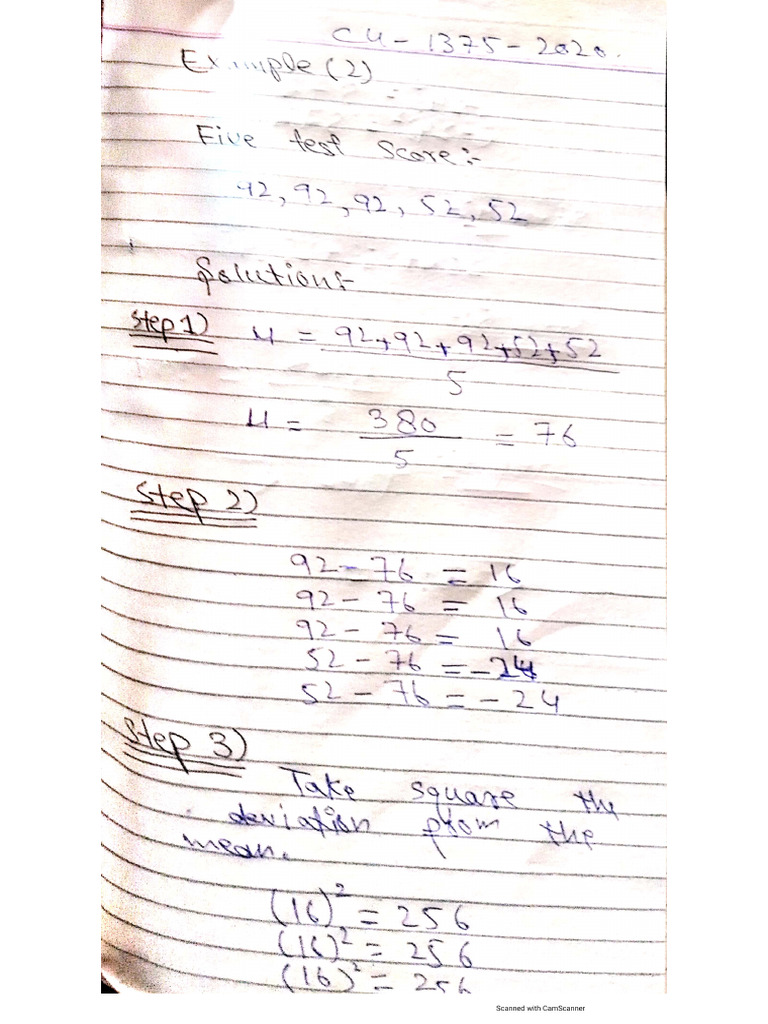 CU-1375-2020.
Example (2)
Five test score:-
92, 92, 92, 52, 52
Solution:-
Step 1) μ = 92+92+92+52+52
5
μ = 380 = 76
5
Step 2)
92 - 76 = 16
92 - 76 = 16
92 - 76 = 16
52 - 76 = -24
52 - 76 = -24
Step 3)
Take square the
deviation from the
mean.
(16)² = 256
(16)² = 256
(16)² = 256
Scanned with CamScanner